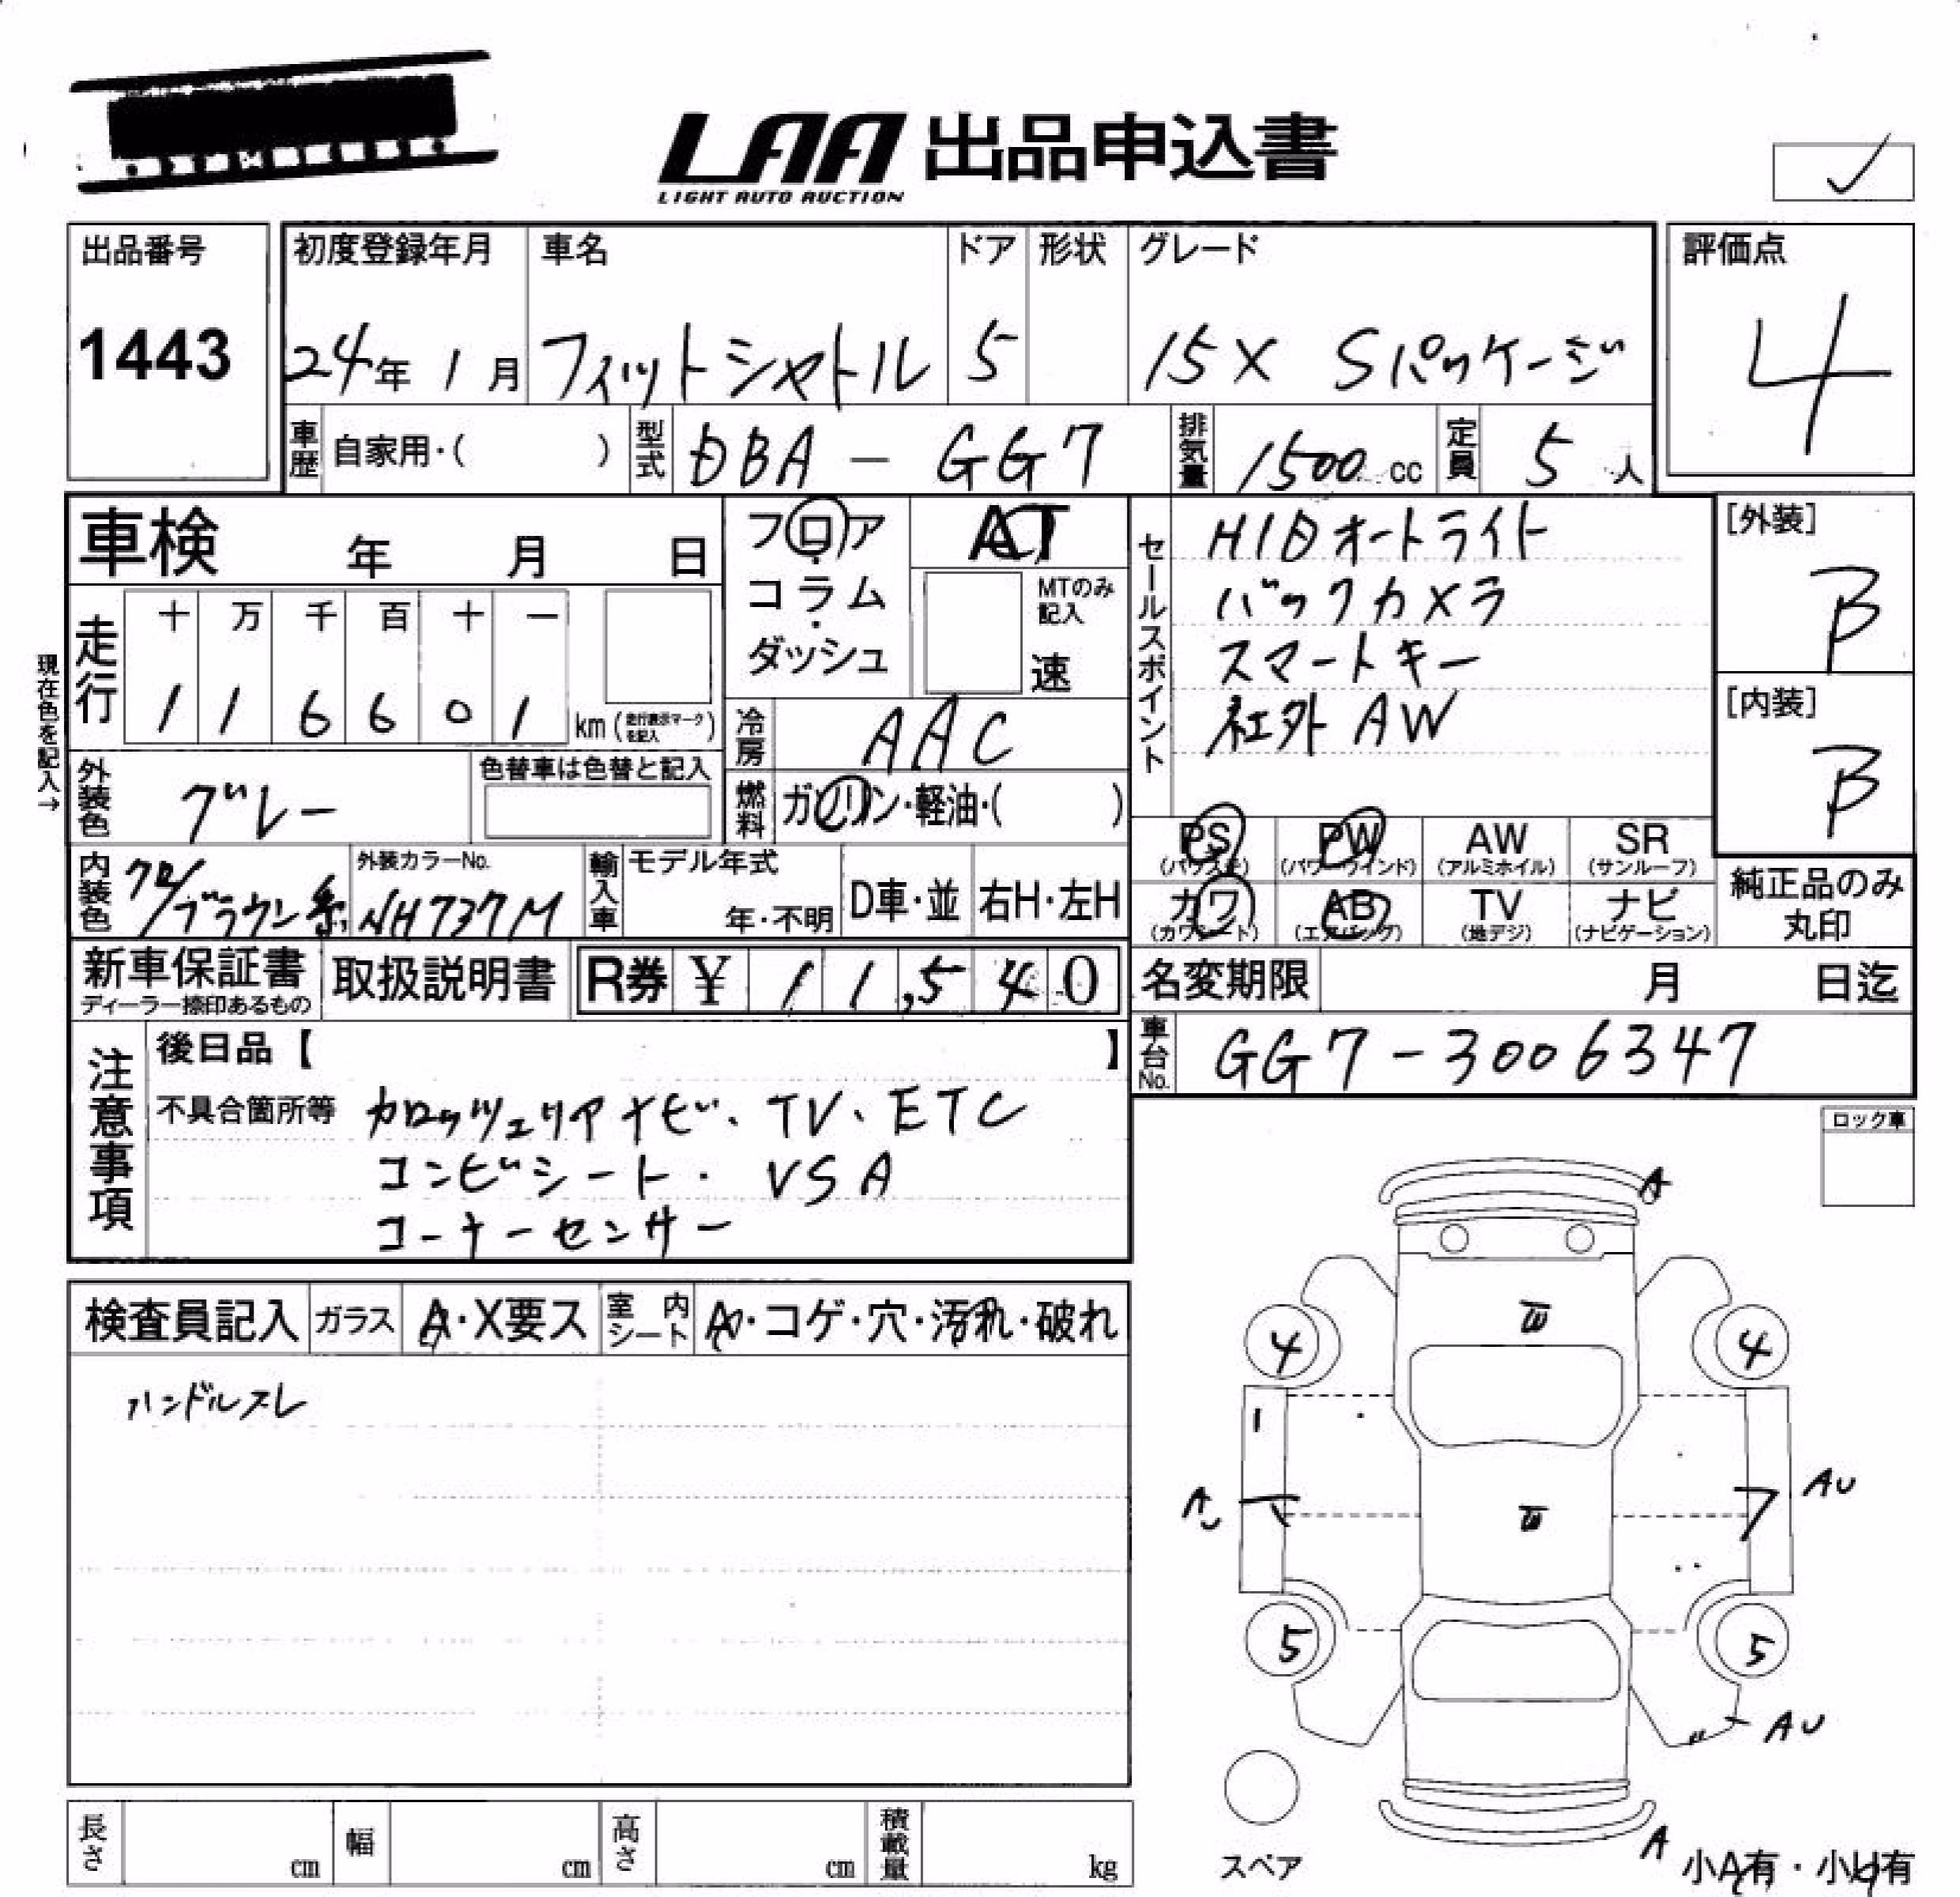 LAA 出品申込書
LIGHT AUTO AUCTION
出品番号
1443
初度登録年月
24年 1月
車名
フィットシャトル
ドア
5
形状
グレード
15X Sパッケージ
評価点
4
車歴 自家用・( )
型式 DBA - GG7
排気量 1500 cc
定員 5 人
車検 年 月 日
フロア・コラム・ダッシュ
AT
MTのみ記入
速
セールスポイント
HIDオートライト
バックカメラ
スマートキー
社外AW
[外装]
B
[内装]
B
現在色を記入→
走行
十 万 千 百 十 一
1 1 6 6 0 1 km (走行表示マークを記入)
冷房 AAC
外装色 グレー
色替車は色替と記入
燃料 ガソリン・軽油・( )
PS (パワステ)
PW (パワーウインド)
AW (アルミホイル)
SR (サンルーフ)
カワ (カワシート)
AB (エアバッグ)
TV (地デジ)
ナビ (ナビゲーション)
純正品のみ丸印
内装色 クロ/ブラウン系
外装カラーNo.
NH737M
輸入車
モデル年式
年・不明
D車・並
右H・左H
新車保証書
ディーラー捺印あるもの
取扱説明書
R券 ¥ 11,540
名変期限 月 日迄
車台No. GG7-3006347
注意事項
後日品【 】
不具合箇所等 カロッツェリアナビ、TV、ETC
コンビシート・VSA
コーナーセンサー
ロック車
検査員記入
ガラス A・X要ス
室内シート A・コゲ・穴・汚れ・破れ
ハンドルスレ
A
4 4
AU
5 5
AU
スペア
A
小A有・小U有
長さ cm
幅 cm
高さ cm
積載量 kg